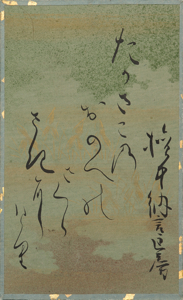 権中納言匡房
たかさこの
おのへの
さくら
さきに
けり